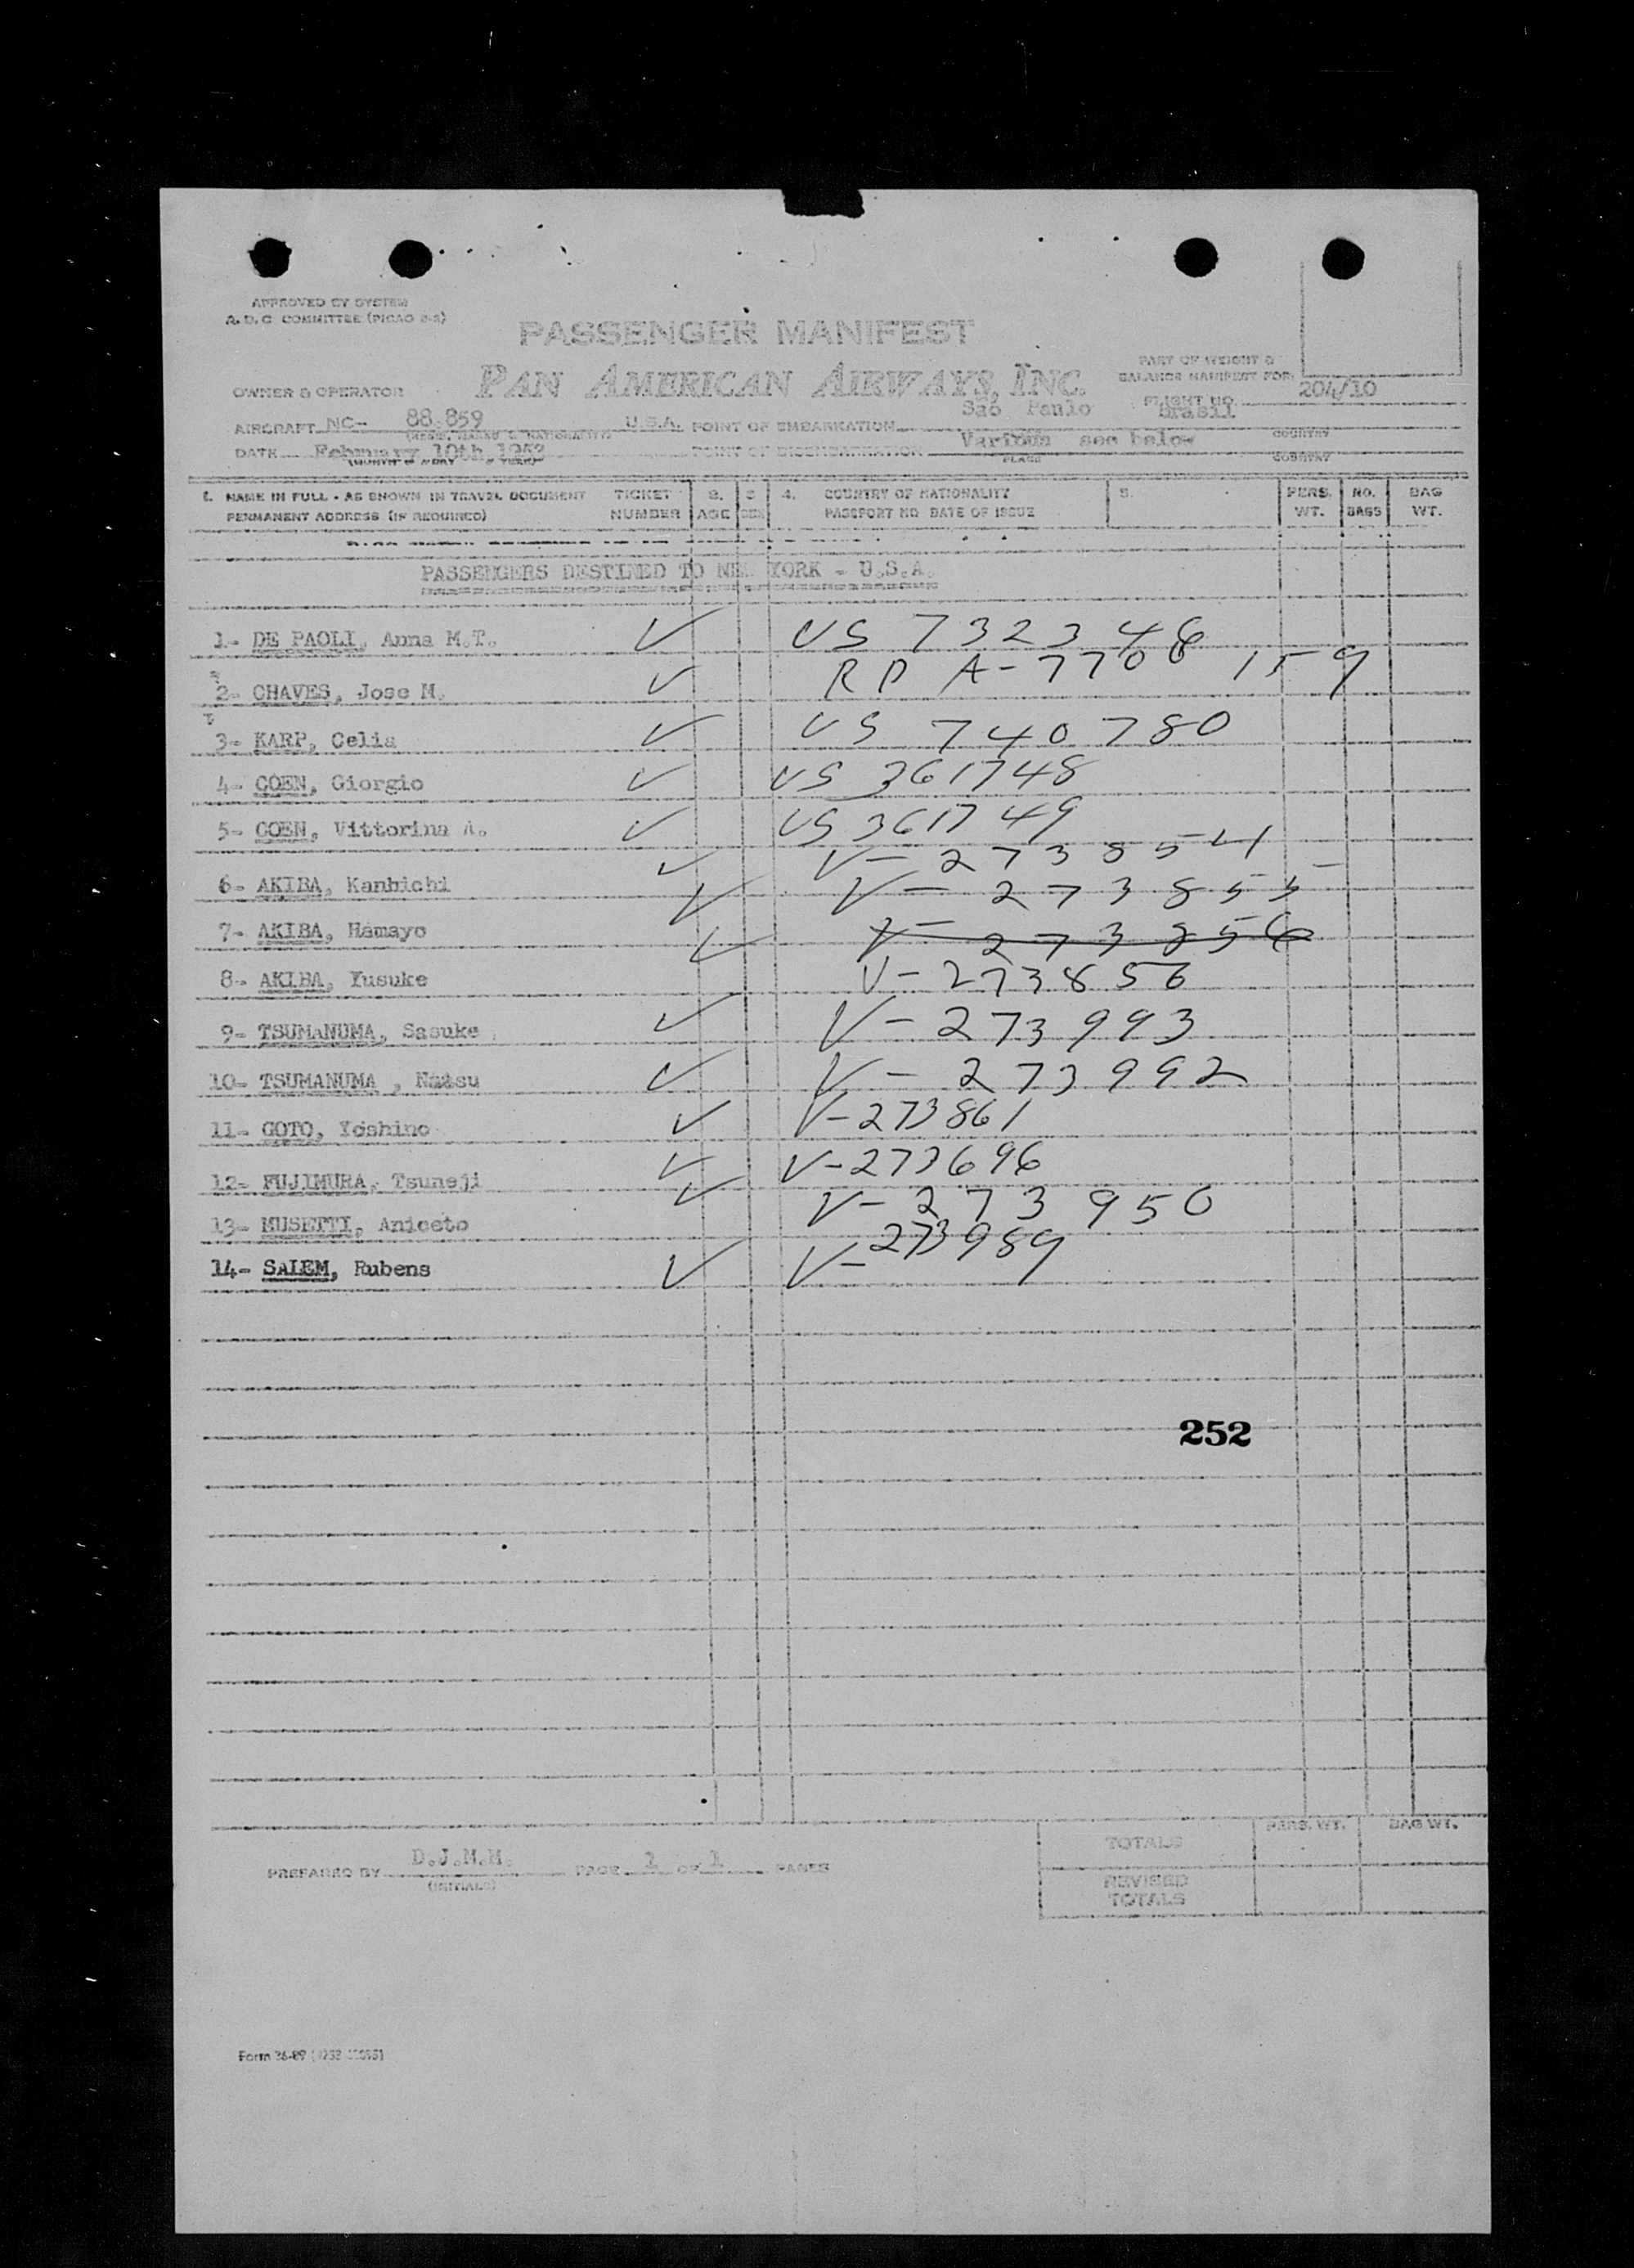 APPROVED BY SYSTEM
A.D.C. COMMITTEE (PICAO 2-2)
PASSENGER MANIFEST
PAN AMERICAN AIRWAYS, INC.
PART OF WEIGHT &
BALANCE MANIFEST FOR:
OWNER & OPERATOR
FLIGHT NO. 204/10
AIRCRAFT NC- 88.859 U.S.A. POINT OF EMBARKATION Sao Paulo Brasil
COUNTRY
DATE February 10th 1952 POINT OF DISEMBARKATION Various see below
PLACE COUNTRY
1. NAME IN FULL - AS SHOWN IN TRAVEL DOCUMENT TICKET 2. 3 4. COUNTRY OF NATIONALITY 5. PERS. NO. BAG
PERMANENT ADDRESS (IF REQUIRED) NUMBER AGE SEX PASSPORT NO. DATE OF ISSUE WT. BAGS WT.
PASSENGERS DESTINED TO NEW YORK - U.S.A.
1- DE PAOLI, Anna M.T. ✓ US 732346
2- CHAVES, Jose M. ✓ RP A-7706 159
3- KARP, Celia ✓ US 740780
4- COEN, Giorgio ✓ US 361748
5- COEN, Vittorina A. ✓ US 361749
6- AKIBA, Kanhichi ✓ V-273854
7- AKIBA, Hamayo ✓ V-273855
✓ V-273856
8- AKIBA, Yusuke V-273856
9- TSUMANUMA, Sasuke ✓ V-273993
10- TSUMANUMA , Natsu ✓ V-273992
11- GOTO, Yoshino ✓ V-273861
12- FUJIMURA, Tsuneji ✓ V-273696
13- MUSETTI, Aniceto ✓ V-273950
14- SALEM, Rubens ✓ V-273989
252
PERS. WT. BAG WT.
TOTALS
PREPARED BY D.J.M.M. PAGE 1 OF 1 PAGES
(INITIALS)
REVISED
TOTALS
Form 36-89